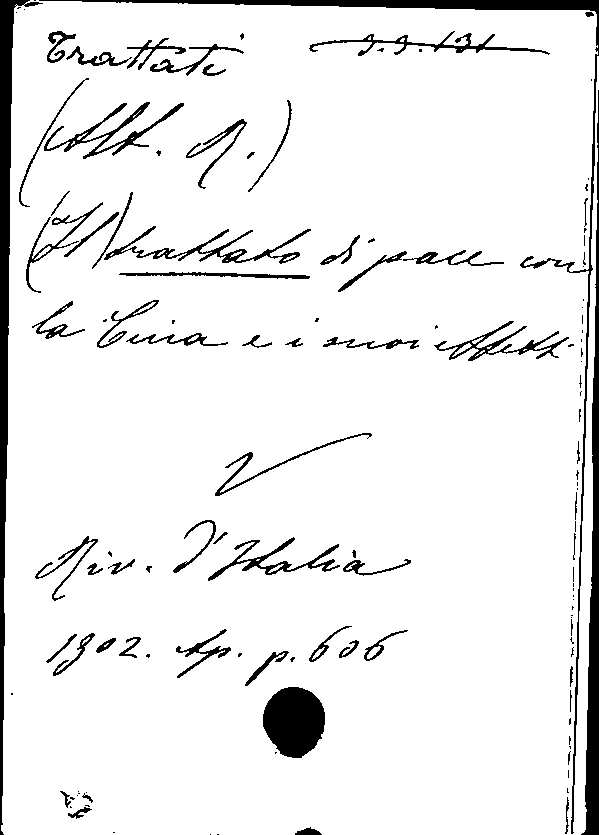 Trattati 9.9.131
(Alt. R.)
(Il) trattato di pace con
la Cina e i suoi effetti
V
Riv. d'Italia
1902. Ap. p. 606